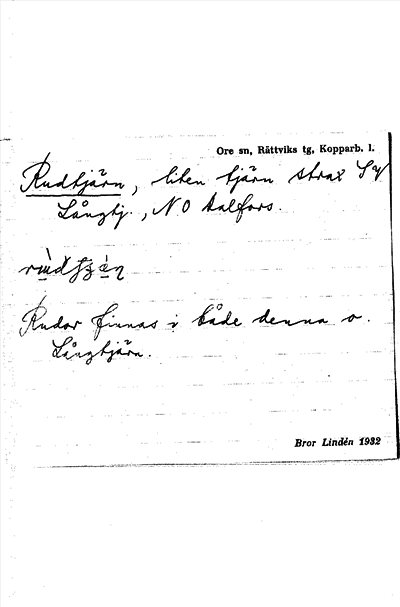 Ore sn, Rättviks tg, Kopparb. l.
Rudtjärn, liten tjärn strax S
Långtj., NO Dalfors.
Rudor finnas i både denna o.
Långtjärn.
Bror Lindén 1932